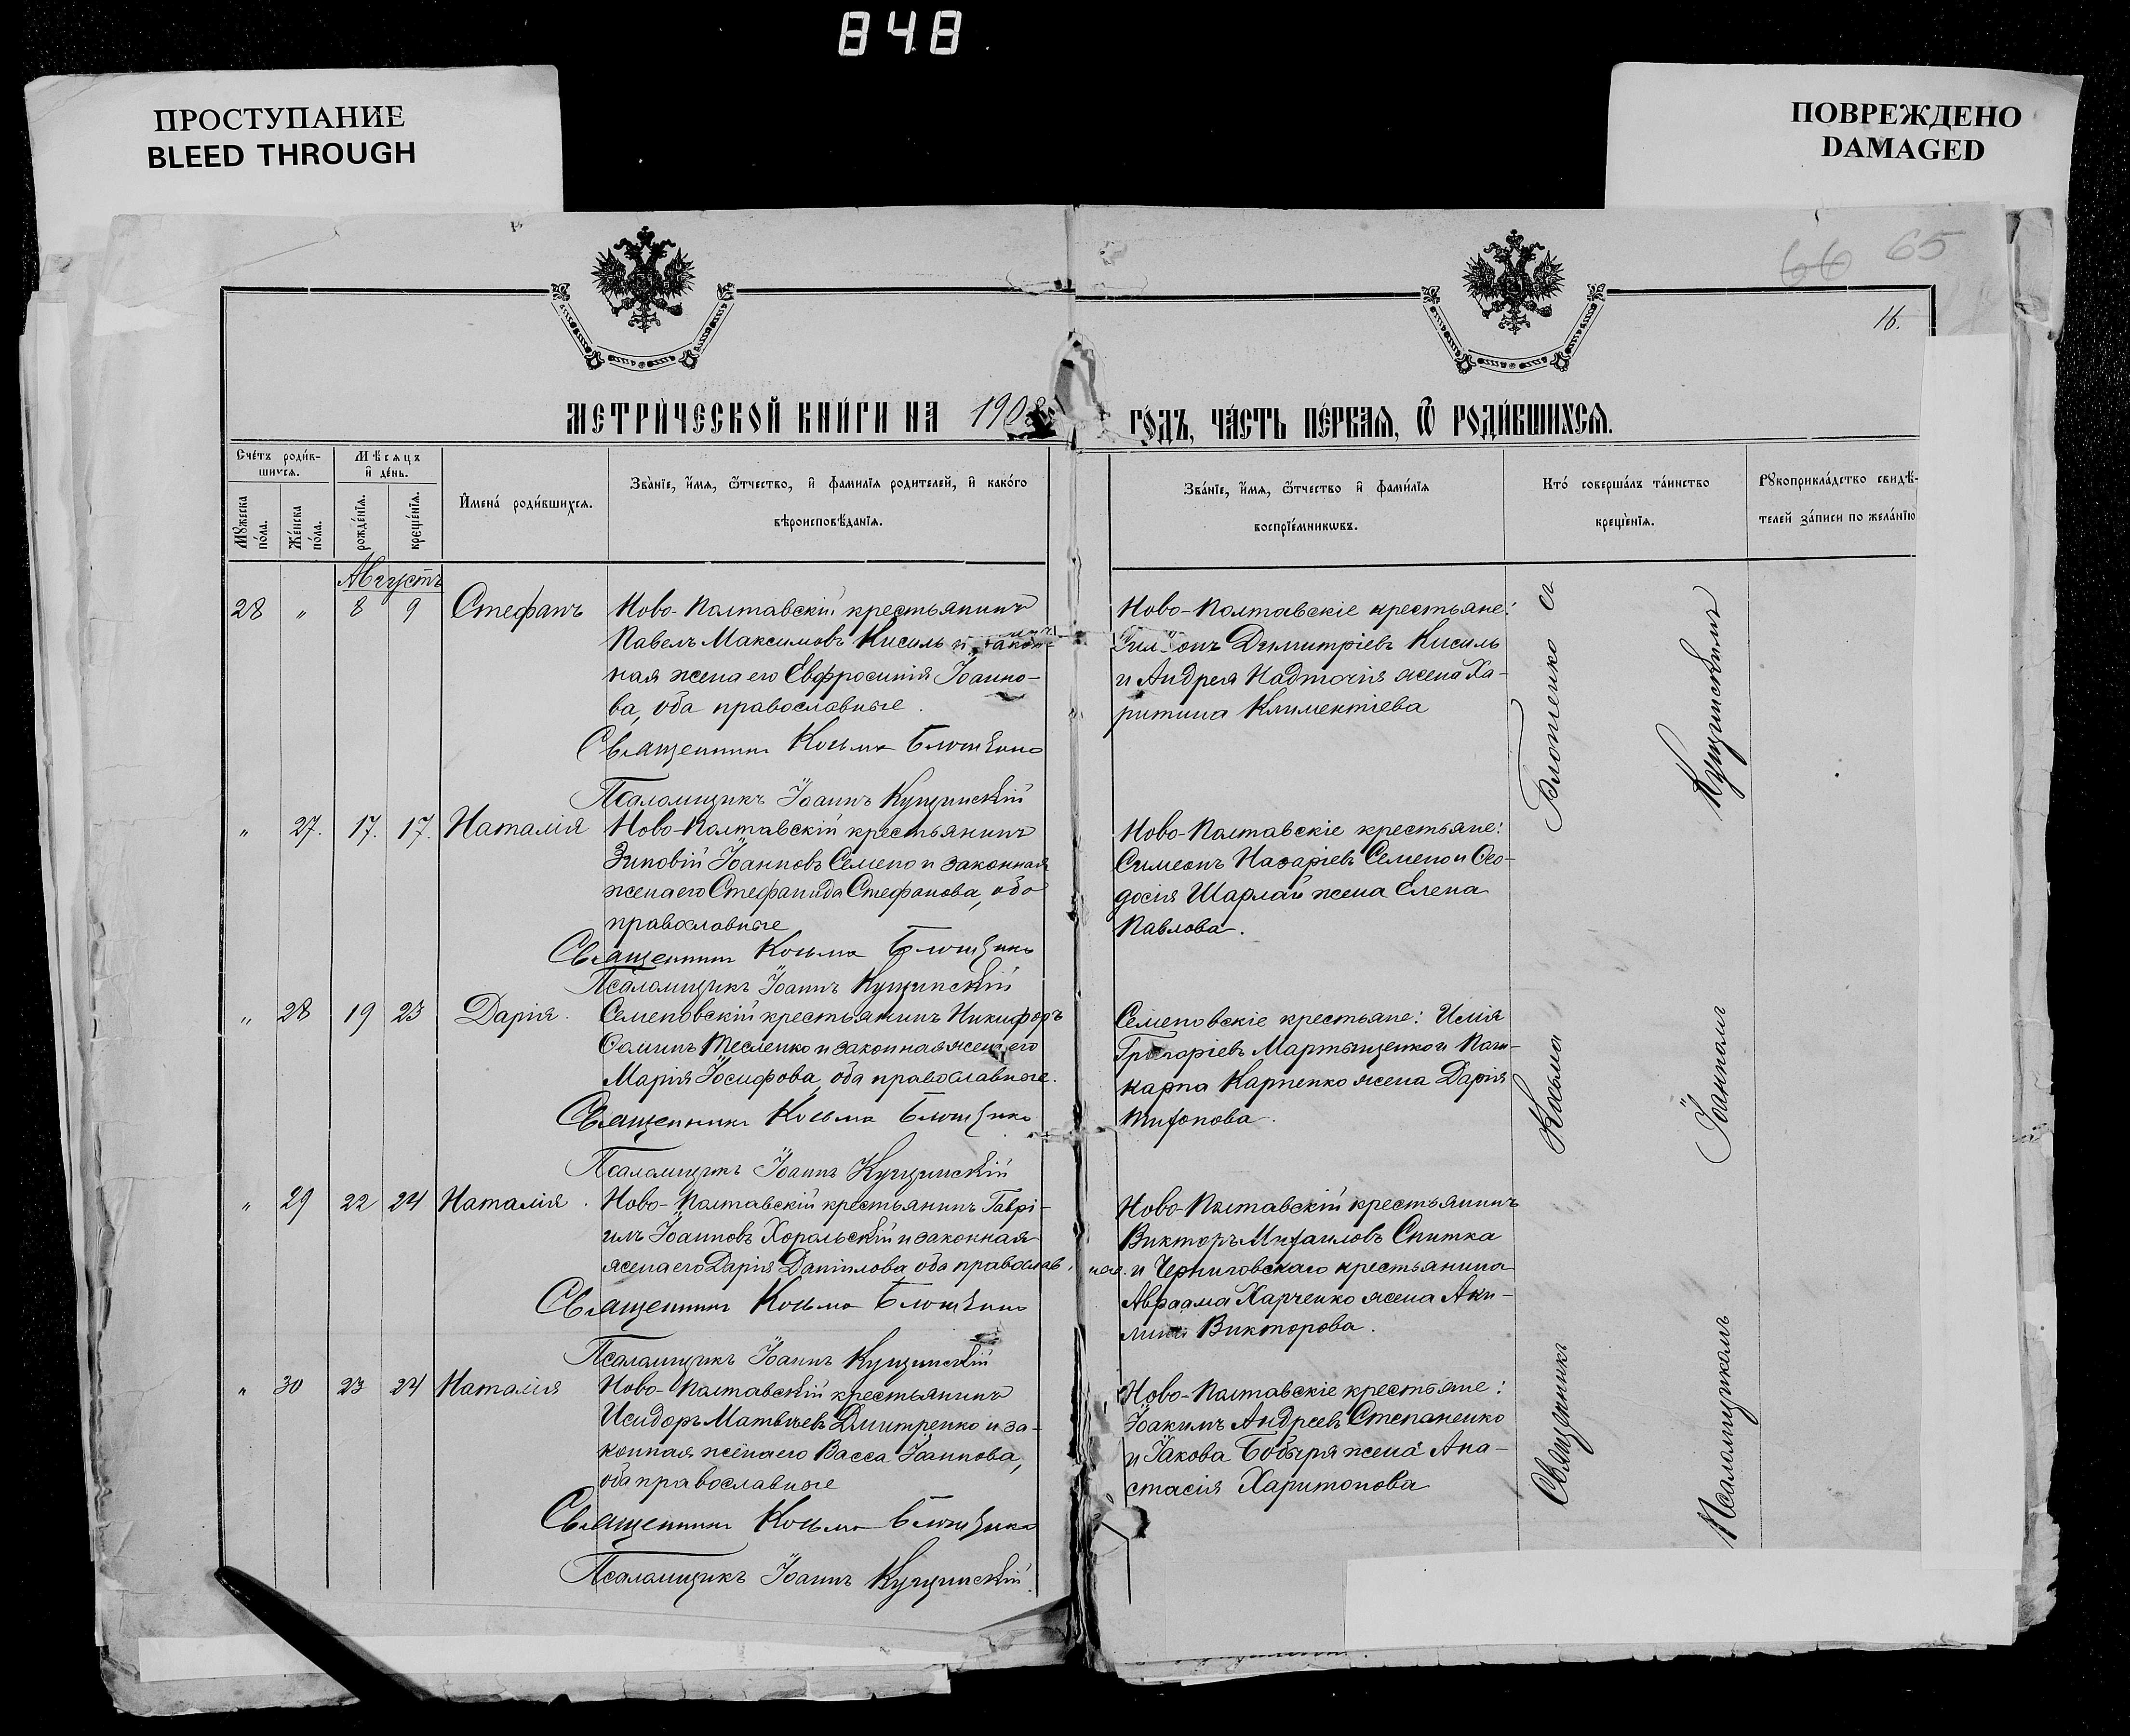 848
ПРОСТУПАНИЕ
BLEED THROUGH
ПОВРЕЖДЕНО
DAMAGED
66 65
16.
МЕТРИ́ЧЕСКОЙ КНИ́ГИ НА 1908
ГО́ДЪ, ЧА́СТЬ ПЕ́РВАѦ, Ѿ РОДИ́ВШИХСѦ.
Сче́тъ роди́в-
шихсѧ.
Мѣсяцъ
и҆ де́нь.
Мꙋжеска
по́ла.
Же́нска
по́ла.
рожде́нїѧ.
креще́нїѧ.
И҆мена̀ роди́вшихсѧ.
Зва́нїе, и҆́мѧ, ѻ҆́тчество, и҆ фами́лїѧ родителей, и҆ како́го
вѣроисповѣ́данїѧ.
Зва́нїе, и҆́мѧ, ѻ҆́тчество и҆ фами́лїѧ
воспрїе́мникѡвъ.
Кто́ соверша́лъ та́инство
креще́нїѧ.
Рꙋкоприкла́дство свидѣ́-
телей за́писи по жела́нїю
Августъ
28 " 8 9 Стефанъ
Ново-Полтавскій крестьянинъ
Павелъ Максимовъ Кисиль и закон-
ная жена его Евфросинія Іоанно-
ва, оба православные.
Священникъ Косьма Блошенко
Псаломщикъ Іоаннъ Кущинскій
Ново-Полтавскіе крестьяне:
Димитріевъ Кисиль
и Андрея Надточія жена Ха-
ритина Климентіева
" 27. 17. 17. Наталія
Ново-Полтавскій крестьянинъ
Зиновій Іоанновъ Семено и законная
жена его Стефанида Стефанова, оба
православные
Священникъ Косьма Блошенко
Псаломщикъ Іоаннъ Кущинскій
Ново-Полтавскіе крестьяне:
Симеонъ Назаріевъ Семено и Ѳео-
досія Шарлай жена Елена
Павлова.
" 28 19 23 Дарія.
Семеновскій крестьянинъ Никифоръ
Ѳоминъ Тесленко и законная жена его
Марія Іосифова, оба православные.
Священникъ Косьма Блошенко
Псаломщикъ Іоаннъ Кущинскій
Семеновскіе крестьяне: Илія
Григоріевъ Мартыщенко и Пам-
Карпенко жена Дарія
Тифонова.
" 29 22 24 Наталія.
Ново-Полтавскій крестьянинъ Гаврі-
илъ Іоанновъ Хорольскій и законная
жена его Дарія Даніилова оба православ-
ные.
Священникъ Косьма Блошенко
Псаломщикъ Іоаннъ Кущинскій
Ново-Полтавскій крестьянинъ
Викторъ Михаиловъ Снитка
и Черниговскаго крестьянина
Авраама Харченко жена Аки-
лина Викторова.
" 30 23 24 Наталія
Ново-Полтавскій крестьянинъ
Исидоръ Матвіевъ Дмитренко и за-
конная жена его Васса Іоаннова,
оба православные
Священникъ Косьма Блошенко
Псаломщикъ Іоаннъ Кущинскій.
Ново-Полтавскіе крестьяне:
Іоакимъ Андреевъ Степаненко
и Іакова Бобыря жена Ана-
стасія Харитонова
Священникъ Косьма Блошенко съ
Псаломщикомъ Іоанномъ Кущинскимъ